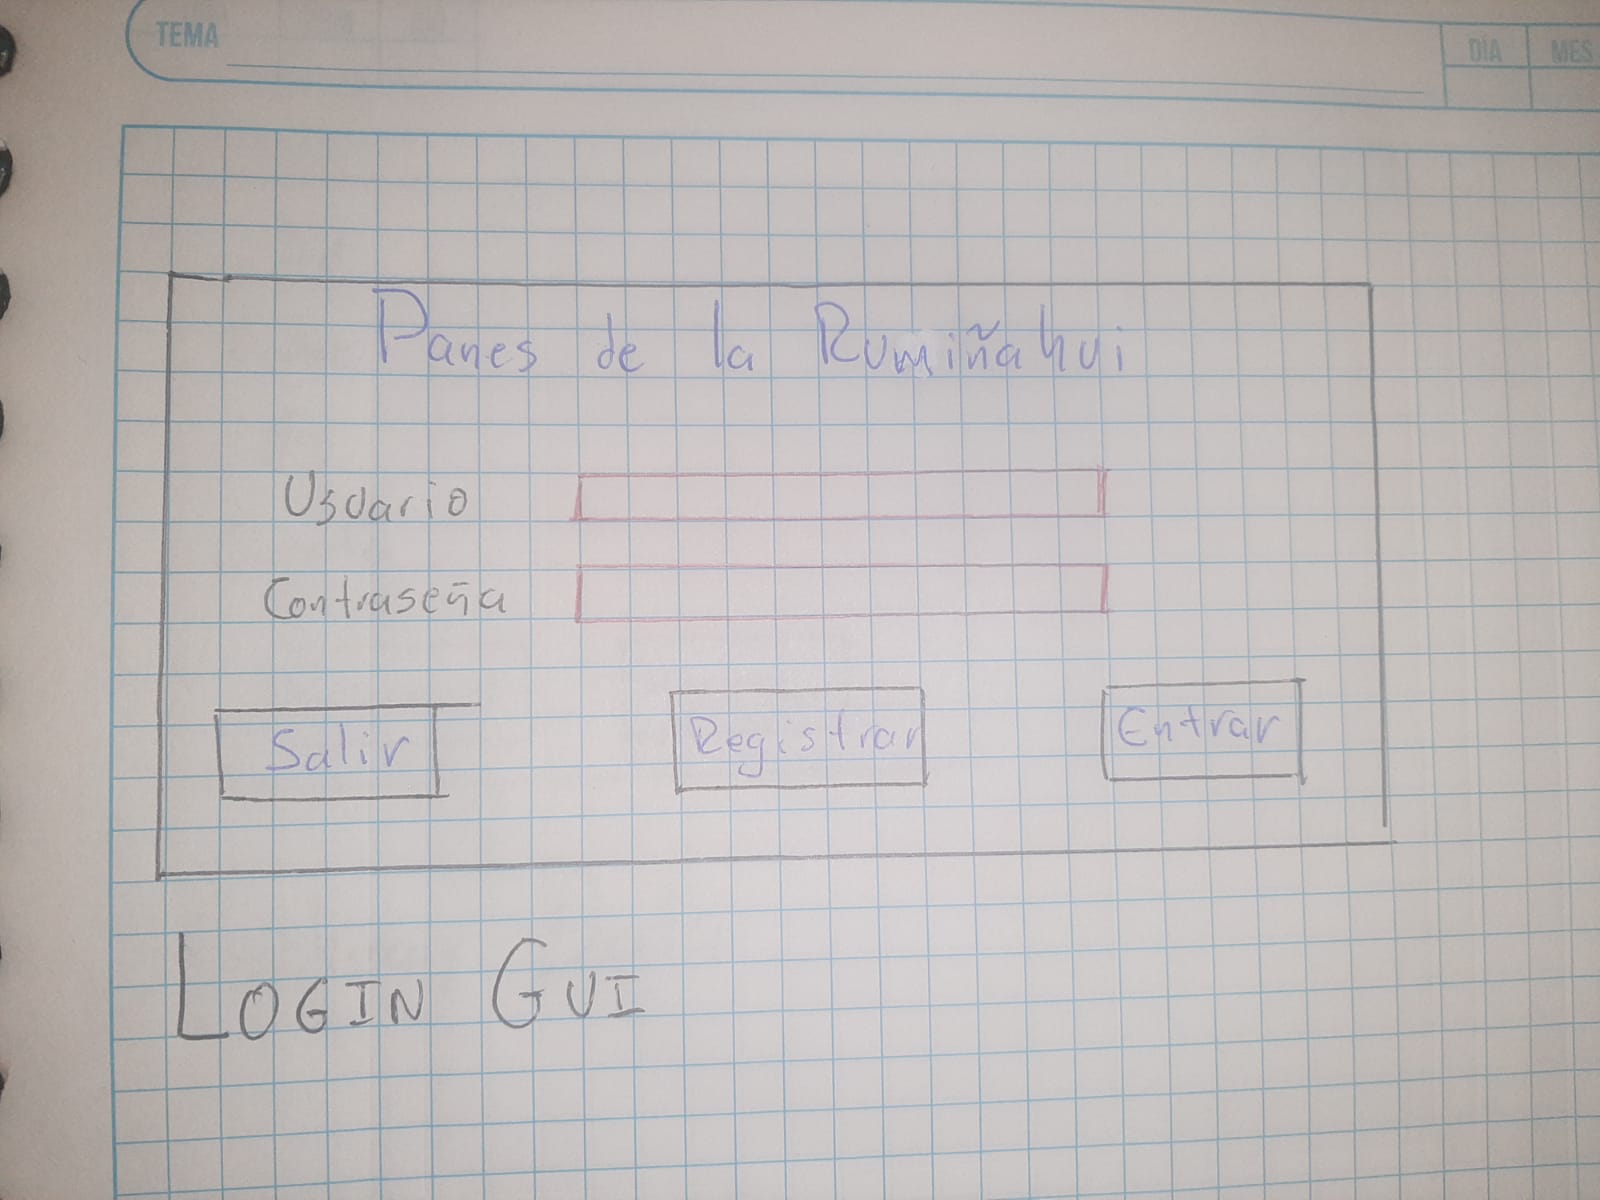 TEMA
DÍA MES
Panes de la Rumiñahui
Usuario
Contraseña
Salir Registrar Entrar
LOGIN GUI